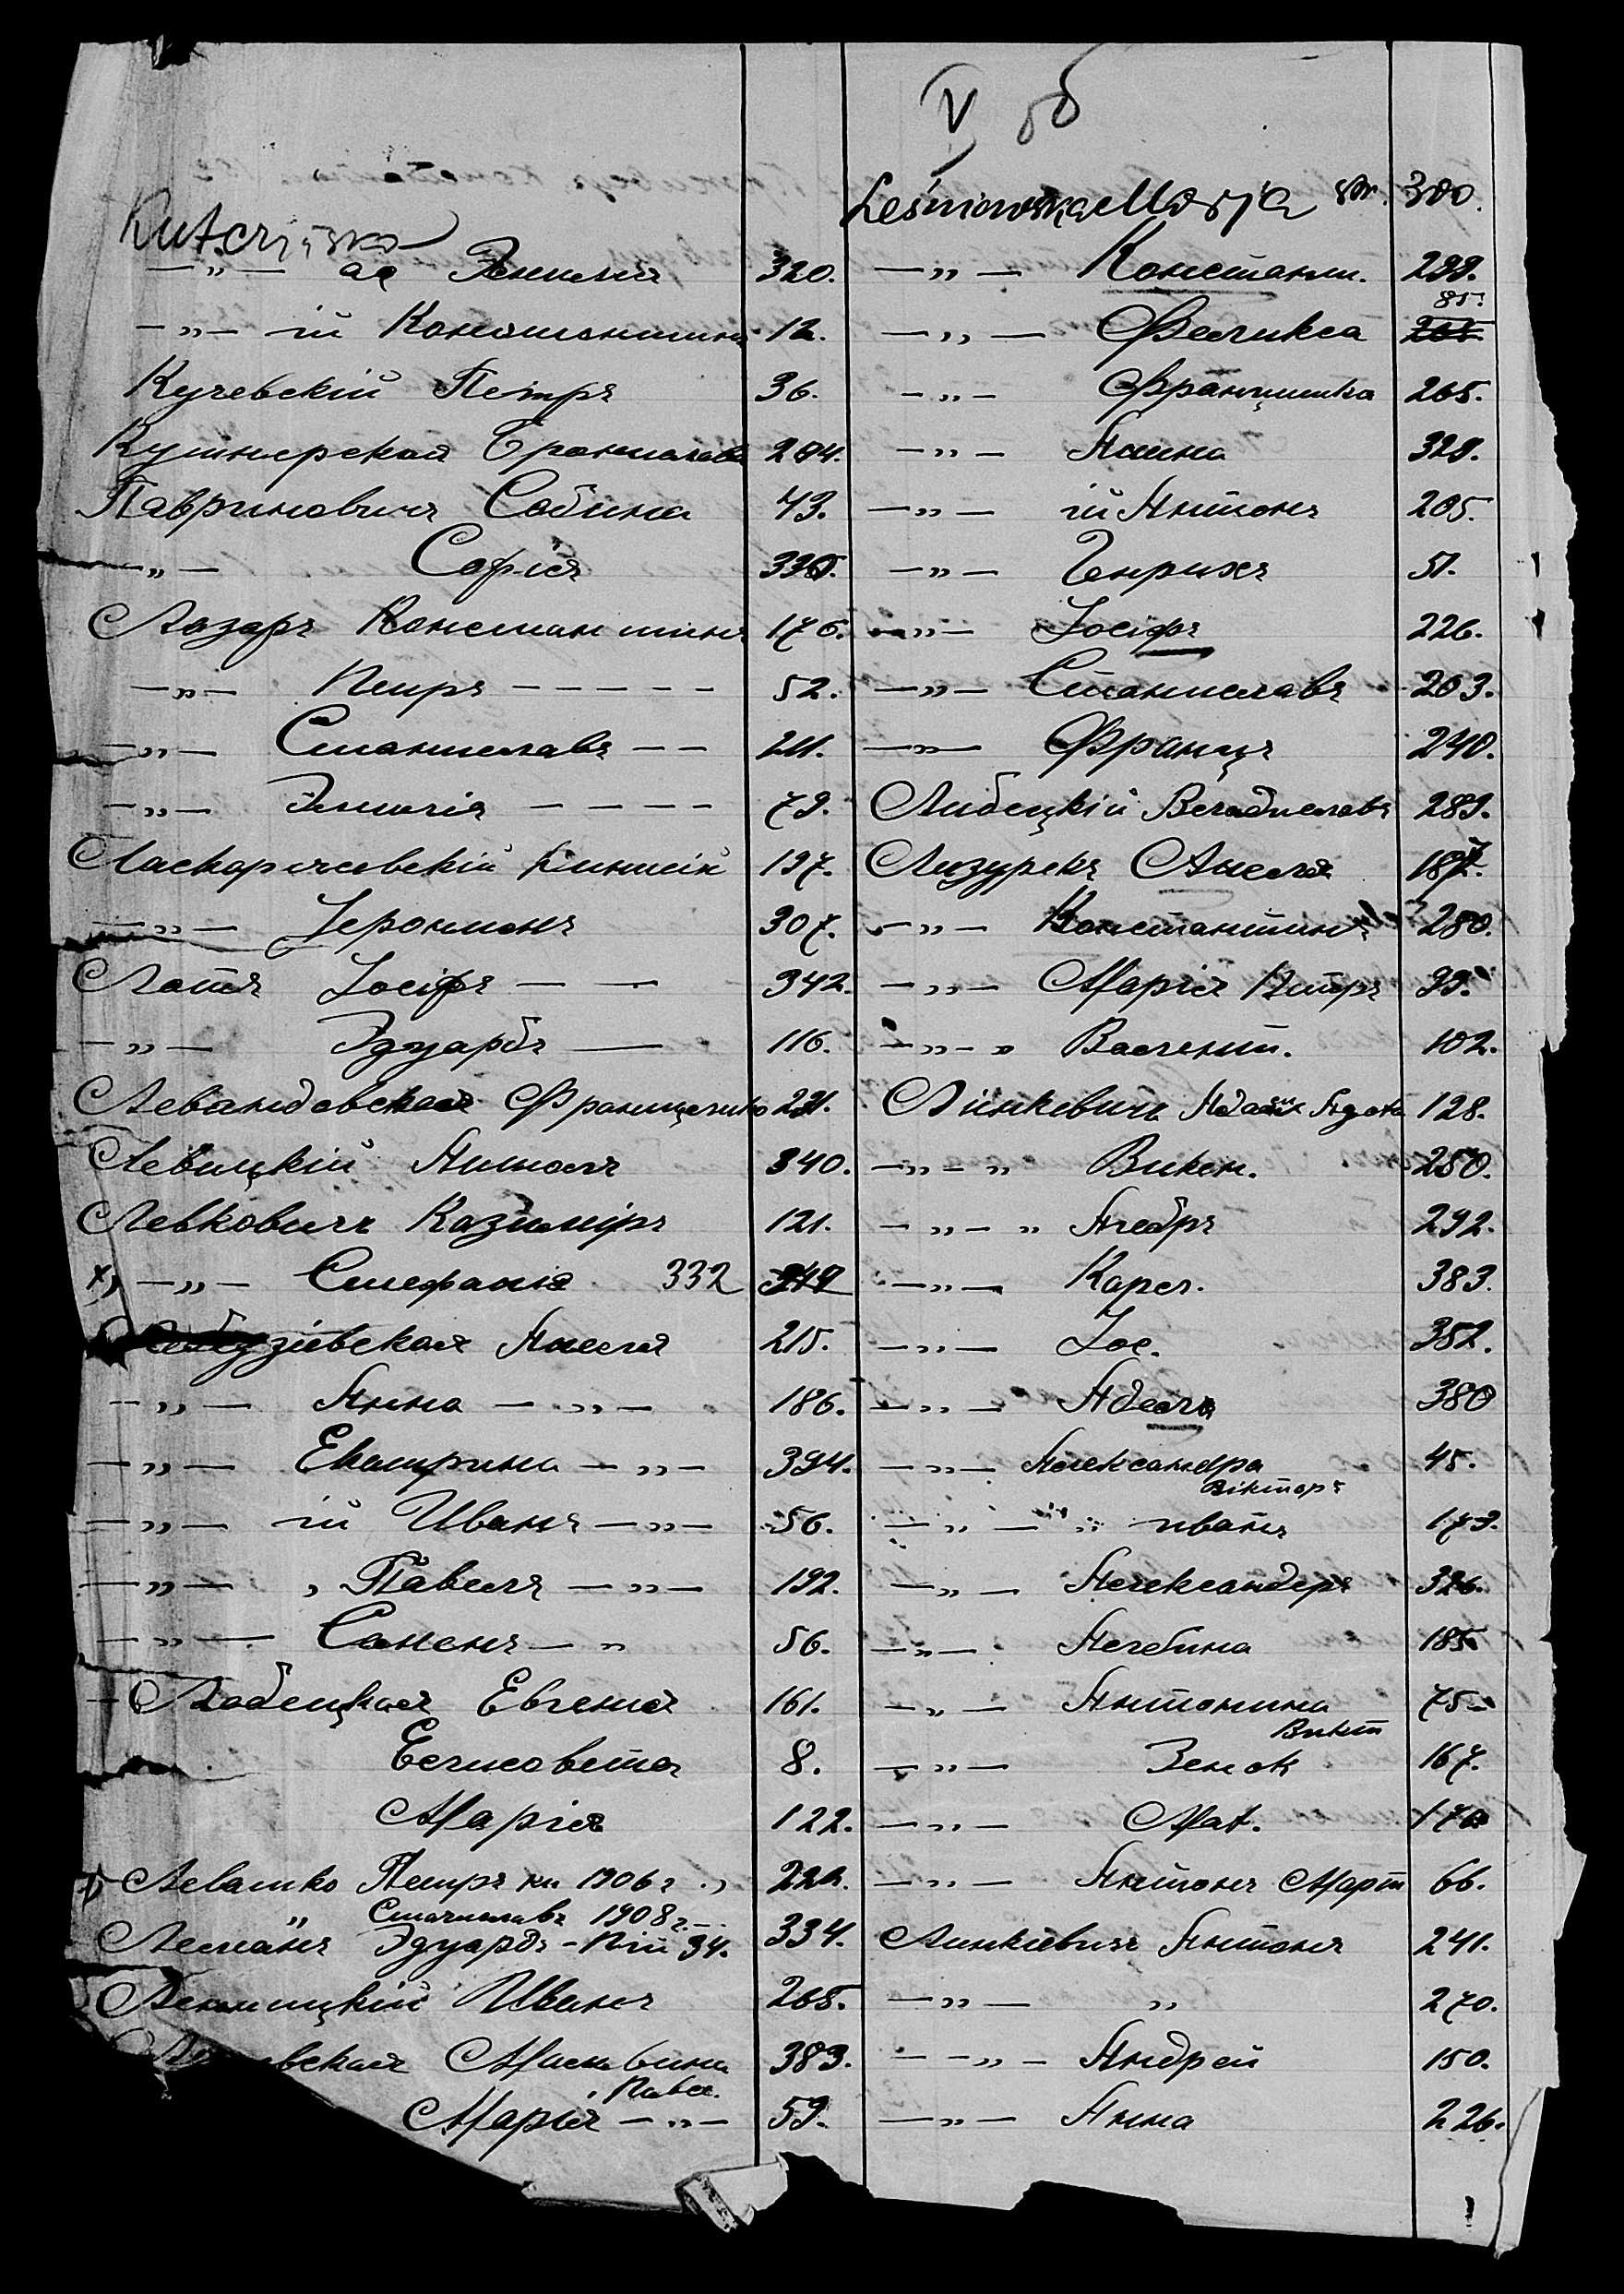 V об
Kutcrzińska
—„— ая Эмилия 320.
—„— ій Константинъ 12.
Кучевскій Петръ 36.
Кушнерская Бронислава 204.
Лавриновичъ Сабина 43.
—„— Софія
Лазаръ Константинъ 176.
—„— Петръ — — — — — 52.
—„— Станиславъ — — 211.
—„— Эмилія — — — — 79.
Ласкоржевскій 197.
—„— Іеронимъ 307.
Лотъ Іосифъ — — 342.
—„— Эдуардъ — 116.
Левандовская Францишка 231.
Левицкій Антонъ 340.
Левковичъ Казиміръ 121.
х, —„— Стефанія 332
зіевская Анеля 215.
—„— Анна —„— 186.
—„— Екатерина —„— 394.
—„— ій Иванъ —„— 56.
—„— „ Павелъ —„— 192.
—„— Семенъ — „ 56.
Лободецкая Евгенія 161.
Елисовета 8.
Марія 122.
Левашко Петръ 1906г.
„ Станиславъ 1908г.
Леманъ Эдуардъ 34. 334.
Иванъ 265.
вская Мальвина 383.
Павел.
Марія —„— 59.
Leśniowska Marja str. 300.
—„— Констант. 299.
—„— Феликса 85.
—„— Францишка 265.
—„— Янина 329.
—„— ій Антонъ 205.
—„— Генрихъ 51.
—„— Іосифъ 226.
—„— Станиславъ 203.
—„— Францъ 240.
Либецкій Владиславъ 289.
Лизурекъ Анеля 187.
—„— Константинъ 280.
—„— Марія Петръ 99.
—„— „ Валент. 102.
Линкевичъ Агата 128.
—„— „ Викен. 250.
—„— „ Андръ 292.
—„— Карол. 383.
—„— Іос. 352.
—„— Аделя 380
—„— Александра 45.
Вікторъ
—„— „ иванъ 173.
—„— Александеръ 326.
—„— Альбина 185
—„— Антонина 75
Викт
—„— Зенок 167.
—„— Мат. 170
—„— Антонъ Март 66.
Линкіевичъ Антонъ 241.
—„— „ 270.
—„— Андрей 150.
—„— Анна 226.